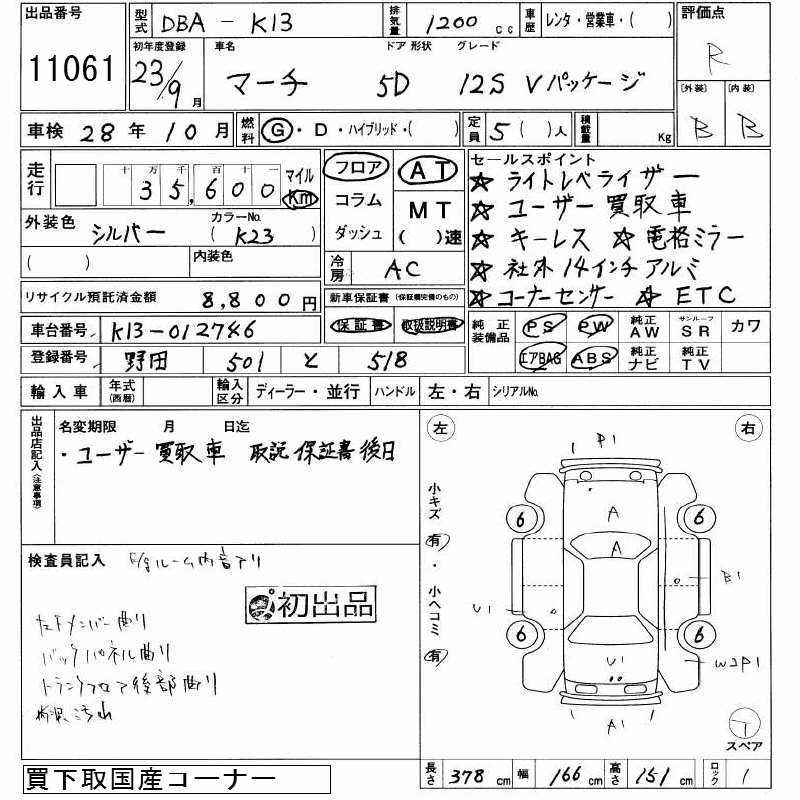 出品番号 型式 DBA - K13 排気量 1200 cc 車歴 レンタ・営業車・( ) 評価点
11061 初年度登録 車名 ドア 形状 グレード R
23/9月 マーチ 5D 12S Vパッケージ [外装] [内装]
車検 28年10月 燃料 G・D・ハイブリッド・( ) 定員 5( )人 積載量 Kg B B
走行 十 万 千 百 十 一 マイル
35,600 Km フロア AT
コラム MT
ダッシュ ( )速
外装色 シルバー カラーNo. (K23)
( ) 内装色 冷房 AC
セールスポイント
☆ ライトレベライザー
☆ ユーザー買取車
☆ キーレス ☆ 電格ミラー
☆ 社外14インチアルミ
☆ コーナーセンサー ☆ ETC
リサイクル預託済金額 8,800円 新車保証書(保証継続完備のもの)
車台番号 K13-012746 保証書 取扱説明書 純正装備品 PS PW 純正AW サンルーフSR カワ
登録番号 野田 501 と 518 エアBAG ABS 純正ナビ 純正TV
輸入車 年式(西暦) 輸入区分 ディーラー・並行 ハンドル 左・右 シリアルNo.
出品店記入(注意事項) 名変期限 月 日迄
・ユーザー買取車 取説 保証書後日
検査員記入 E/gルーム内音アリ
初出品
左Fメンバー曲り
バックパネル曲り
トランクフロア後部曲り
左 右
小キズ 有 ・ 小ヘコミ 有
P1
A
6 6
A
B1
U1
6 6
U1 W2P1
A1
T
スペア
買下取国産コーナー 長さ 378cm 幅 166cm 高さ 151cm ロック 1